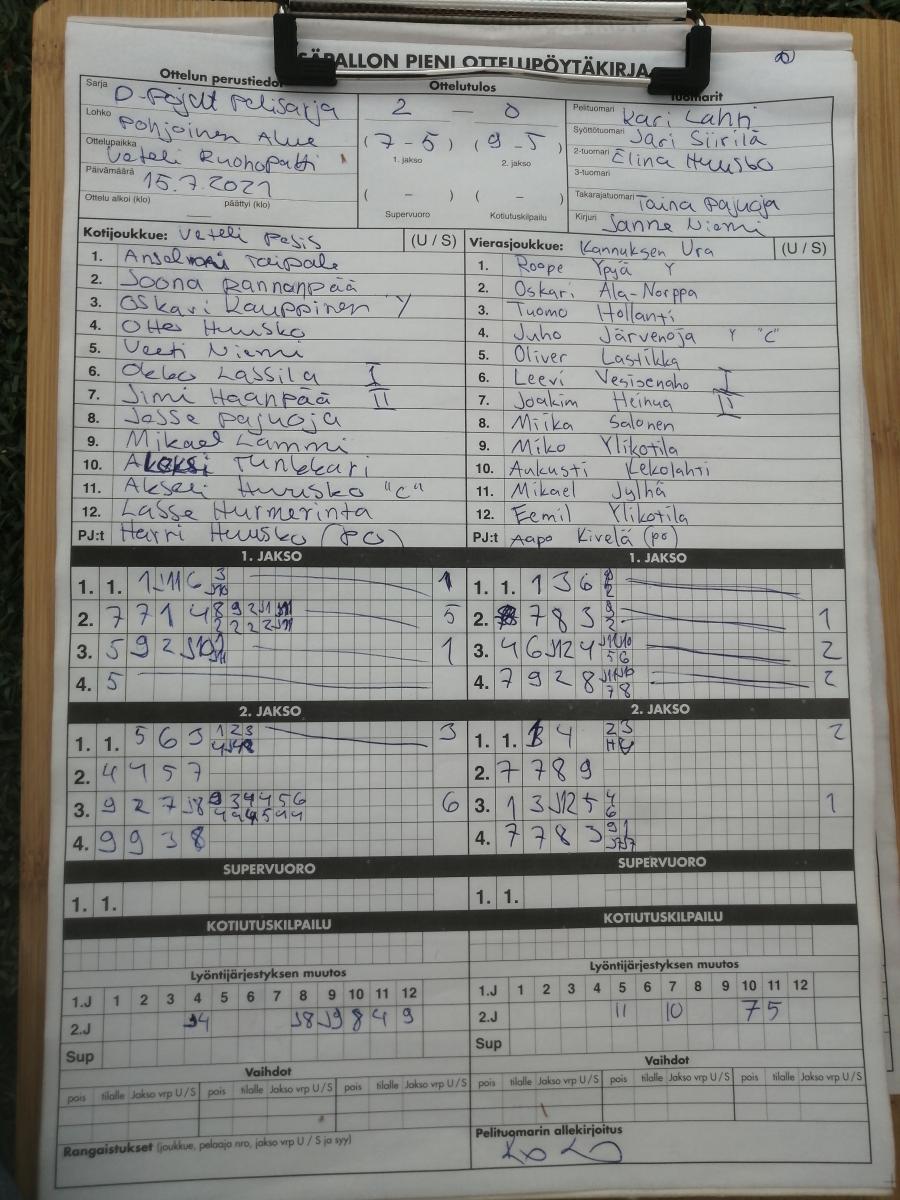 SÄPALLON PIENI OTTELUPÖYTÄKIRJA
Ottelun perustiedot
Sarja D-pojat pelisarja
Lohko Pohjoinen Alue
Ottelupaikka Veteli Ruohopatti
Päivämäärä 15.7.2021
Ottelu alkoi (klo) päättyi (klo)
Ottelutulos
2 — 0
(7-5) (9-5)
1. jakso 2. jakso
( - ) ( - )
Supervuoro Kotiutuskilpailu
Tuomarit
Pelituomari Kari Lahti
Syöttötuomari Jari Siirilä
2-tuomari Elina Huusko
3-tuomari
Takarajatuomari Taina Pajuoja
Kirjuri Sanna Niemi
Kotijoukkue: Veteli Pesis (U / S)
1. Taipale
2. Joona Rannanpää
3. Oskari Kauppinen Y
4. Otto Huusko
5. Veeti Niemi
6. Okko Lassila I
7. Jimi Haanpää II
8. Jesse Pajuoja
9. Mikael Lammi
10. Aleksi Tunkkari
11. Akseli Huusko "C"
12. Lasse Hurmerinta
PJ:t Harri Huusko (PO)
Vierasjoukkue: Kannuksen Ura (U / S)
1. Roope Ypyä Y
2. Oskari Ala-Norppa
3. Tuomo Hollanti
4. Juho Järvenoja Y "C"
5. Oliver Lastikka
6. Leevi Vesisenaho I
7. Joakim Heinua II
8. Miika Salonen
9. Miko Ylikotila
10. Aukusti Kekolahti
11. Mikael Jylhä
12. Eemil Ylikotila
PJ:t Aapo Kivelä (po)
1. JAKSO
1. 1. 1 J11 6 3 1
2. 7 7 1 4 5
3. 5 9 2 J10 1
4. 5
1. JAKSO
1. 1. 1 3 6
2. 7 8 3 1
3. 4 6 J12 4 2
5 6
4. 7 9 2 8 2
7 8
2. JAKSO
1. 1. 5 6 3 1 2 3 3
2. 4 4 5 7
3. 9 2 7 J8 9 3 4 4 4 5 6 6
4. 9 9 3 8
2. JAKSO
1. 1. 4 2 3 2
2. 7 7 8 9
3. 1 3 J12 5 4 1
6
4. 7 7 8 3 9 1
SUPERVUORO
1. 1.
SUPERVUORO
1. 1.
KOTIUTUSKILPAILU
KOTIUTUSKILPAILU
Lyöntijärjestyksen muutos
1.J 1 2 3 4 5 6 7 8 9 10 11 12
2.J J4 J8 J9 8 4 9
Sup
Lyöntijärjestyksen muutos
1.J 1 2 3 4 5 6 7 8 9 10 11 12
2.J 11 10 7 5
Sup
Vaihdot
pois tilalle Jakso vrp U / S pois tilalle Jakso vrp U / S pois tilalle Jakso vrp U / S
Vaihdot
pois tilalle Jakso vrp U / S pois tilalle Jakso vrp U / S pois tilalle Jakso vrp U / S
Rangaistukset (joukkue, pelaaja nro, jakso vrp U / S ja syy)
Pelituomarin allekirjoitus